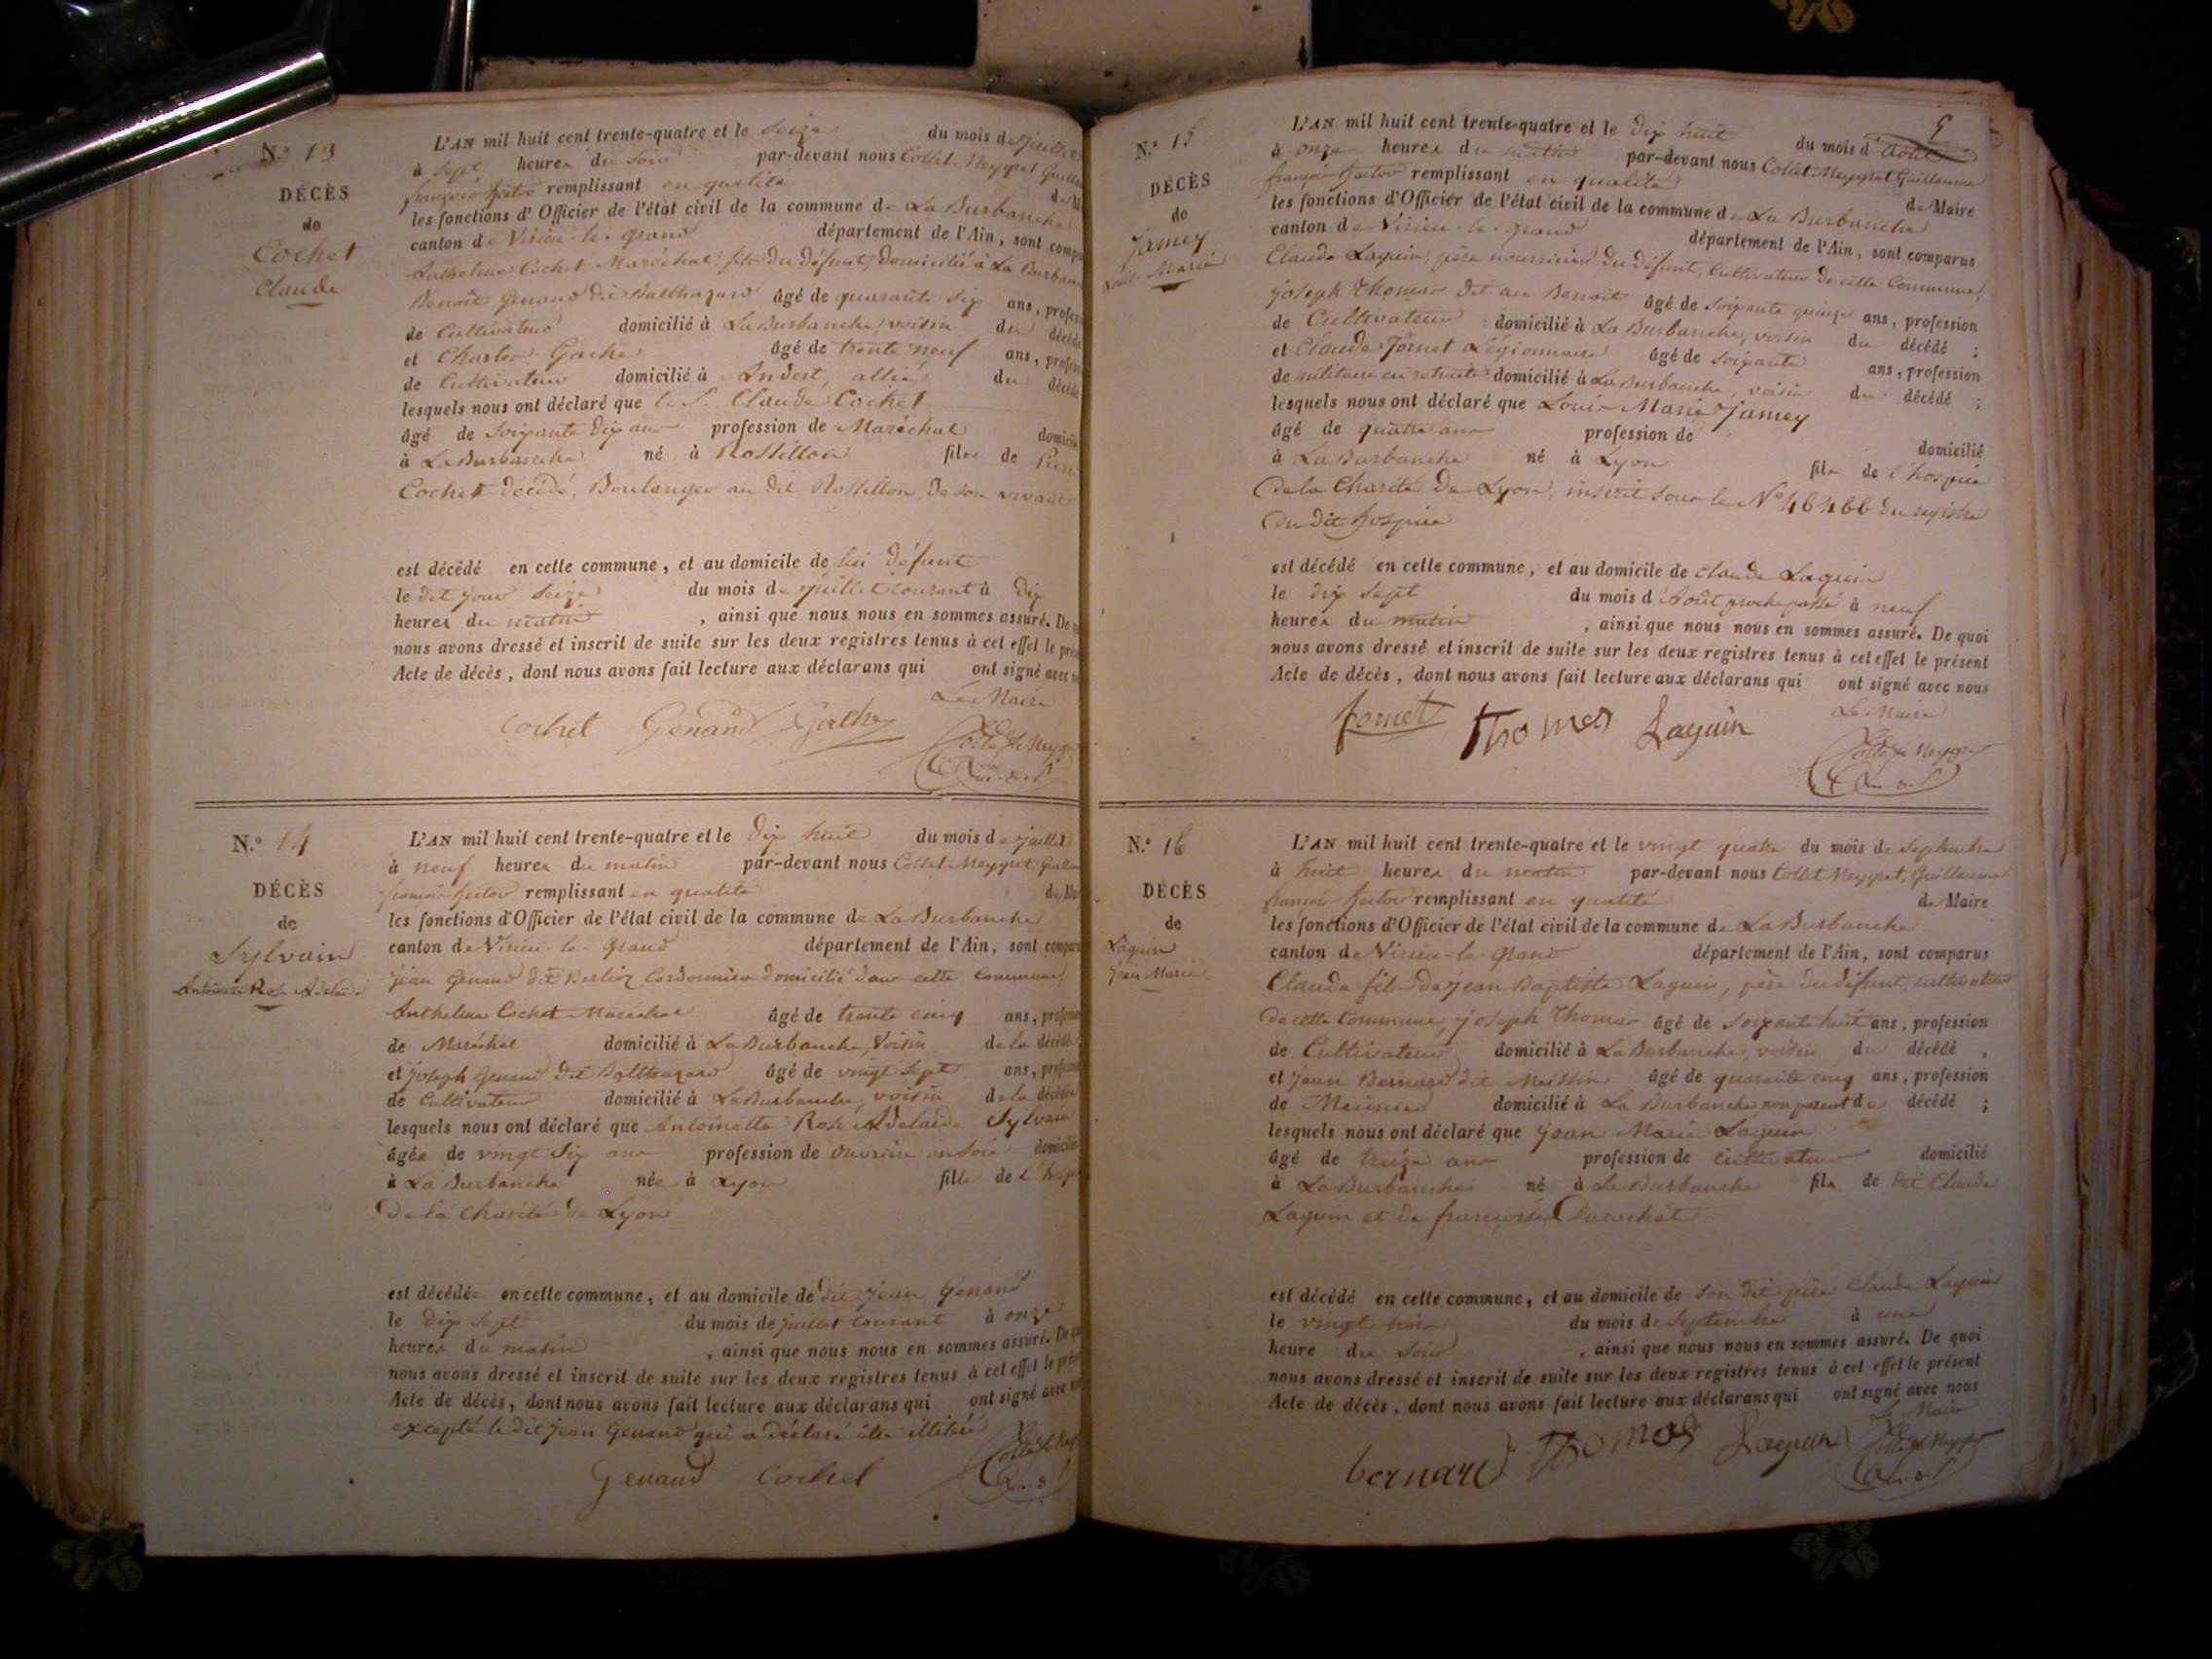 N.° 13
DÉCÈS
de
Cochet
Claude
L'AN mil huit cent trente-quatre et le seize du mois de juillet
à sept heures du soir par-devant nous Collet-Meygret Guillaume
françois hector remplissant en qualité de M
les fonctions d'Officier de l'état civil de la commune de La Burbanche
canton de Virieu-le-grand département de l'Ain, sont compa
Anthelme Cochet, Maréchal, fils du défunt, domicilié à La Burban
Benoît Genand dit Balthazard âgé de quarante six ans, profes
de Cultivateur domicilié à La Burbanche, voisin du décédé
et Charles Gache âgé de trente neuf ans, profess
de Cultivateur domicilié à Andert, allié du décédé
lesquels nous ont déclaré que le S. Claude Cochet
âgé de soixante dix ans profession de Maréchal domicili
à La Burbanche né à Rossillon fils de Pierre
Cochet décédé, Boulanger au dit Rossillon, de son vivant
est décédé en cette commune, et au domicile de lui défunt
le dit jour seize du mois de juillet courant à dix
heures du matin, ainsi que nous nous en sommes assuré. De q
nous avons dressé et inscrit de suite sur les deux registres tenus à cet effet le prés
Acte de décès, dont nous avons fait lecture aux déclarans qui ont signé avec n
Le Maire
Cochet Genand Gache
Collet Meygret
N.° 14
DÉCÈS
de
Sylvain
Antoinette Rose Adelaide
L'AN mil huit cent trente-quatre et le dix huit du mois de juillet
à neuf heures du matin par-devant nous Collet-Meygret Guillau
françois hector remplissant en qualité de Mai
les fonctions d'Officier de l'état civil de la commune de La Burbanche
canton de Virieu-le-grand département de l'Ain, sont compar
jean Genand dit Berlioz Cordonnier domicilié dans cette Commune,
Anthelme Cochet Maréchal âgé de trente cinq ans, profession
de Maréchal domicilié à La Burbanche, voisin de la décédée
et joseph Genand dit Balthazard âgé de vingt sept ans, profess
de Cultivateur domicilié à La Burbanche, voisin de la décédée
lesquels nous ont déclaré que Antoinette Rose Adelaide Sylvain
âgée de vingt six ans profession de ouvrière en soie domicilié
à La Burbanche née à Lyon fille de l'hosp
de la Charité de Lyon
est décédée en cette commune, et au domicile de dit jean Genand
le dix sept du mois de juillet courant à onze
heures du matin, ainsi que nous nous en sommes assuré. De qu
nous avons dressé et inscrit de suite sur les deux registres tenus à cet effet le prés
Acte de décès, dont nous avons fait lecture aux déclarans qui ont signé avec n
excepté le dit jean Genand qui a déclaré être illitéré
Genand Cochet
Collet Meyg
9
N.° 15
DÉCÈS
de
Jamey
Louis-Marie
L'AN mil huit cent trente-quatre et le dix huit du mois d'août
à onze heures du matin par-devant nous Collet-Meygret Guillaume
françois hector remplissant en qualité de Maire
les fonctions d'Officier de l'état civil de la commune de La Burbanche
canton de Virieu-le-grand département de l'Ain, sont comparus
Claude Laguin, père nourricier du défunt, Cultivateur de cette Commune,
joseph Thomas dit au Benoît âgé de soixante quinze ans, profession
de Cultivateur domicilié à La Burbanche, voisin du décédé;
et Claude Fornet Légionnaire âgé de soixante ans, profession
de militaire en retraite domicilié à La Burbanche, voisin du décédé;
lesquels nous ont déclaré que Louis Marie Jamey
âgé de quatre ans profession de domicilié
à La Burbanche né à Lyon fils de l'hospice
de la Charité de Lyon, inscrit sous le N° 46466 du registre
du dit hospice
est décédé en cette commune, et au domicile de Claude Laguin
le dix sept du mois d'Août proche passé à neuf
heures du matin, ainsi que nous nous en sommes assuré. De quoi
nous avons dressé et inscrit de suite sur les deux registres tenus à cet effet le présent
Acte de décès, dont nous avons fait lecture aux déclarans qui ont signé avec nous
Le Maire
fornet Thomas Laguin
Collet Meygret
N.° 16
DÉCÈS
de
Laguin
Jean Marie
L'AN mil huit cent trente-quatre et le vingt quatre du mois de Septembre
à huit heures du matin par-devant nous Collet Meygret, Guillaume
françois hector remplissant en qualité de Maire
les fonctions d'Officier de l'état civil de la commune de La Burbanche
canton de Virieu-le-grand département de l'Ain, sont comparus
Claude fils de jean Baptiste Laguin, père du défunt, cultivateur
de cette Commune, joseph Thomas âgé de soixante huit ans, profession
de Cultivateur domicilié à La Burbanche, voisin du décédé,
et jean Bernard dit Meissin âgé de quarante cinq ans, profession
de Meunier domicilié à La Burbanche non parent du décédé;
lesquels nous ont déclaré que jean Marie Laguin
âgé de treize ans profession de cultivateur domicilié
à La Burbanche né à La Burbanche fils de dit Claude
Laguin et de françoise Durochat
est décédé en cette commune, et au domicile de son dit père Claude Laguin
le vingt trois du mois de Septembre à une
heure du soir, ainsi que nous nous en sommes assuré. De quoi
nous avons dressé et inscrit de suite sur les deux registres tenus à cet effet le présent
Acte de décès, dont nous avons fait lecture aux déclarans qui ont signé avec nous
Le Maire
bernard Thomas Laguin
Collet Meygret